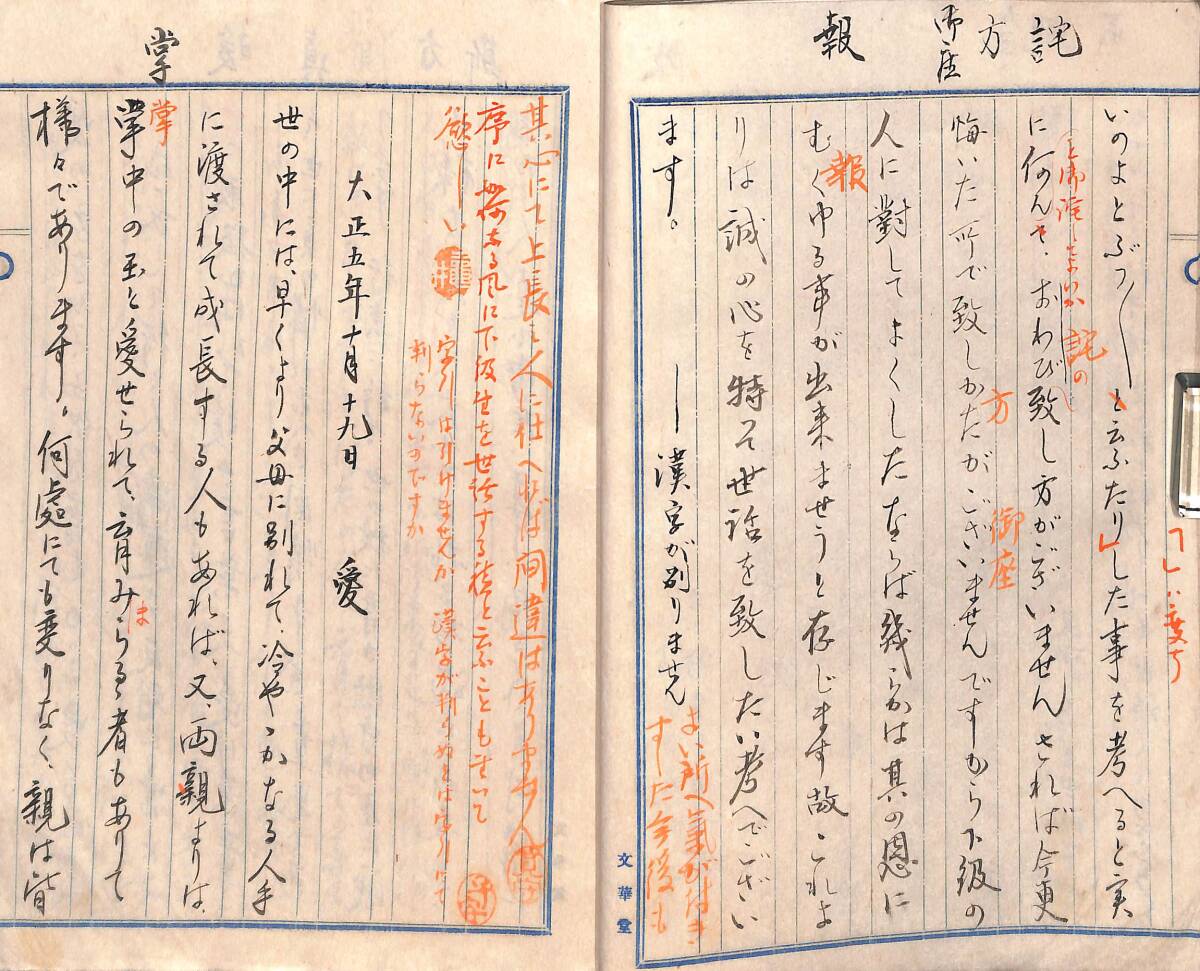 詫 方 御座 報
いのよとぶつ〱と云ふたりした事を考へると実
に何んとおわび致し方がございません されば今更
詫の
悔いた所で致しかたがございませんですから下級の
方 御座
人に對してよくしたならば幾らかは其の恩に
むくゆる事が出来ませうと存じます故これよ
報
りは誠の心を持つて世話を致したい考へでござい
ます。
―漢字が判りません
よい所へ氣が付き
ました今後も
文華堂
其心にて上長の人に仕へれば間違はありません
序に如何なる風に下級生を世話する積と云ふことも書いて
慾しい
字引は引けませんか 漢字が判らぬとは字引にて
判らないのですか
大正五年十月十九日 愛
世の中には、早くより父母に別れて、冷やゝかなる人手
に渡されて成長する人もあれば、又、両親よりは、
掌
掌中の玉と愛せられて、育みらるゝ者もありて
ま
様々であります。何處にても変りなく親は皆
掌